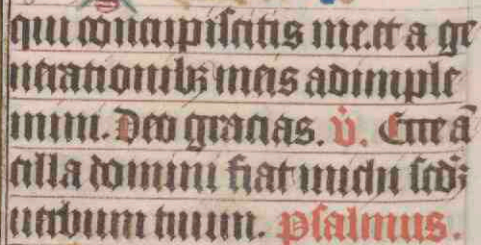 qui concupiscitis me. et a ge
nerationibꝫ meis adimple
mini. Deo gracias. v̇. Ecce ā
cilla domini fiat michi scd̄ꝫ
uerbum tuum. psalmus.